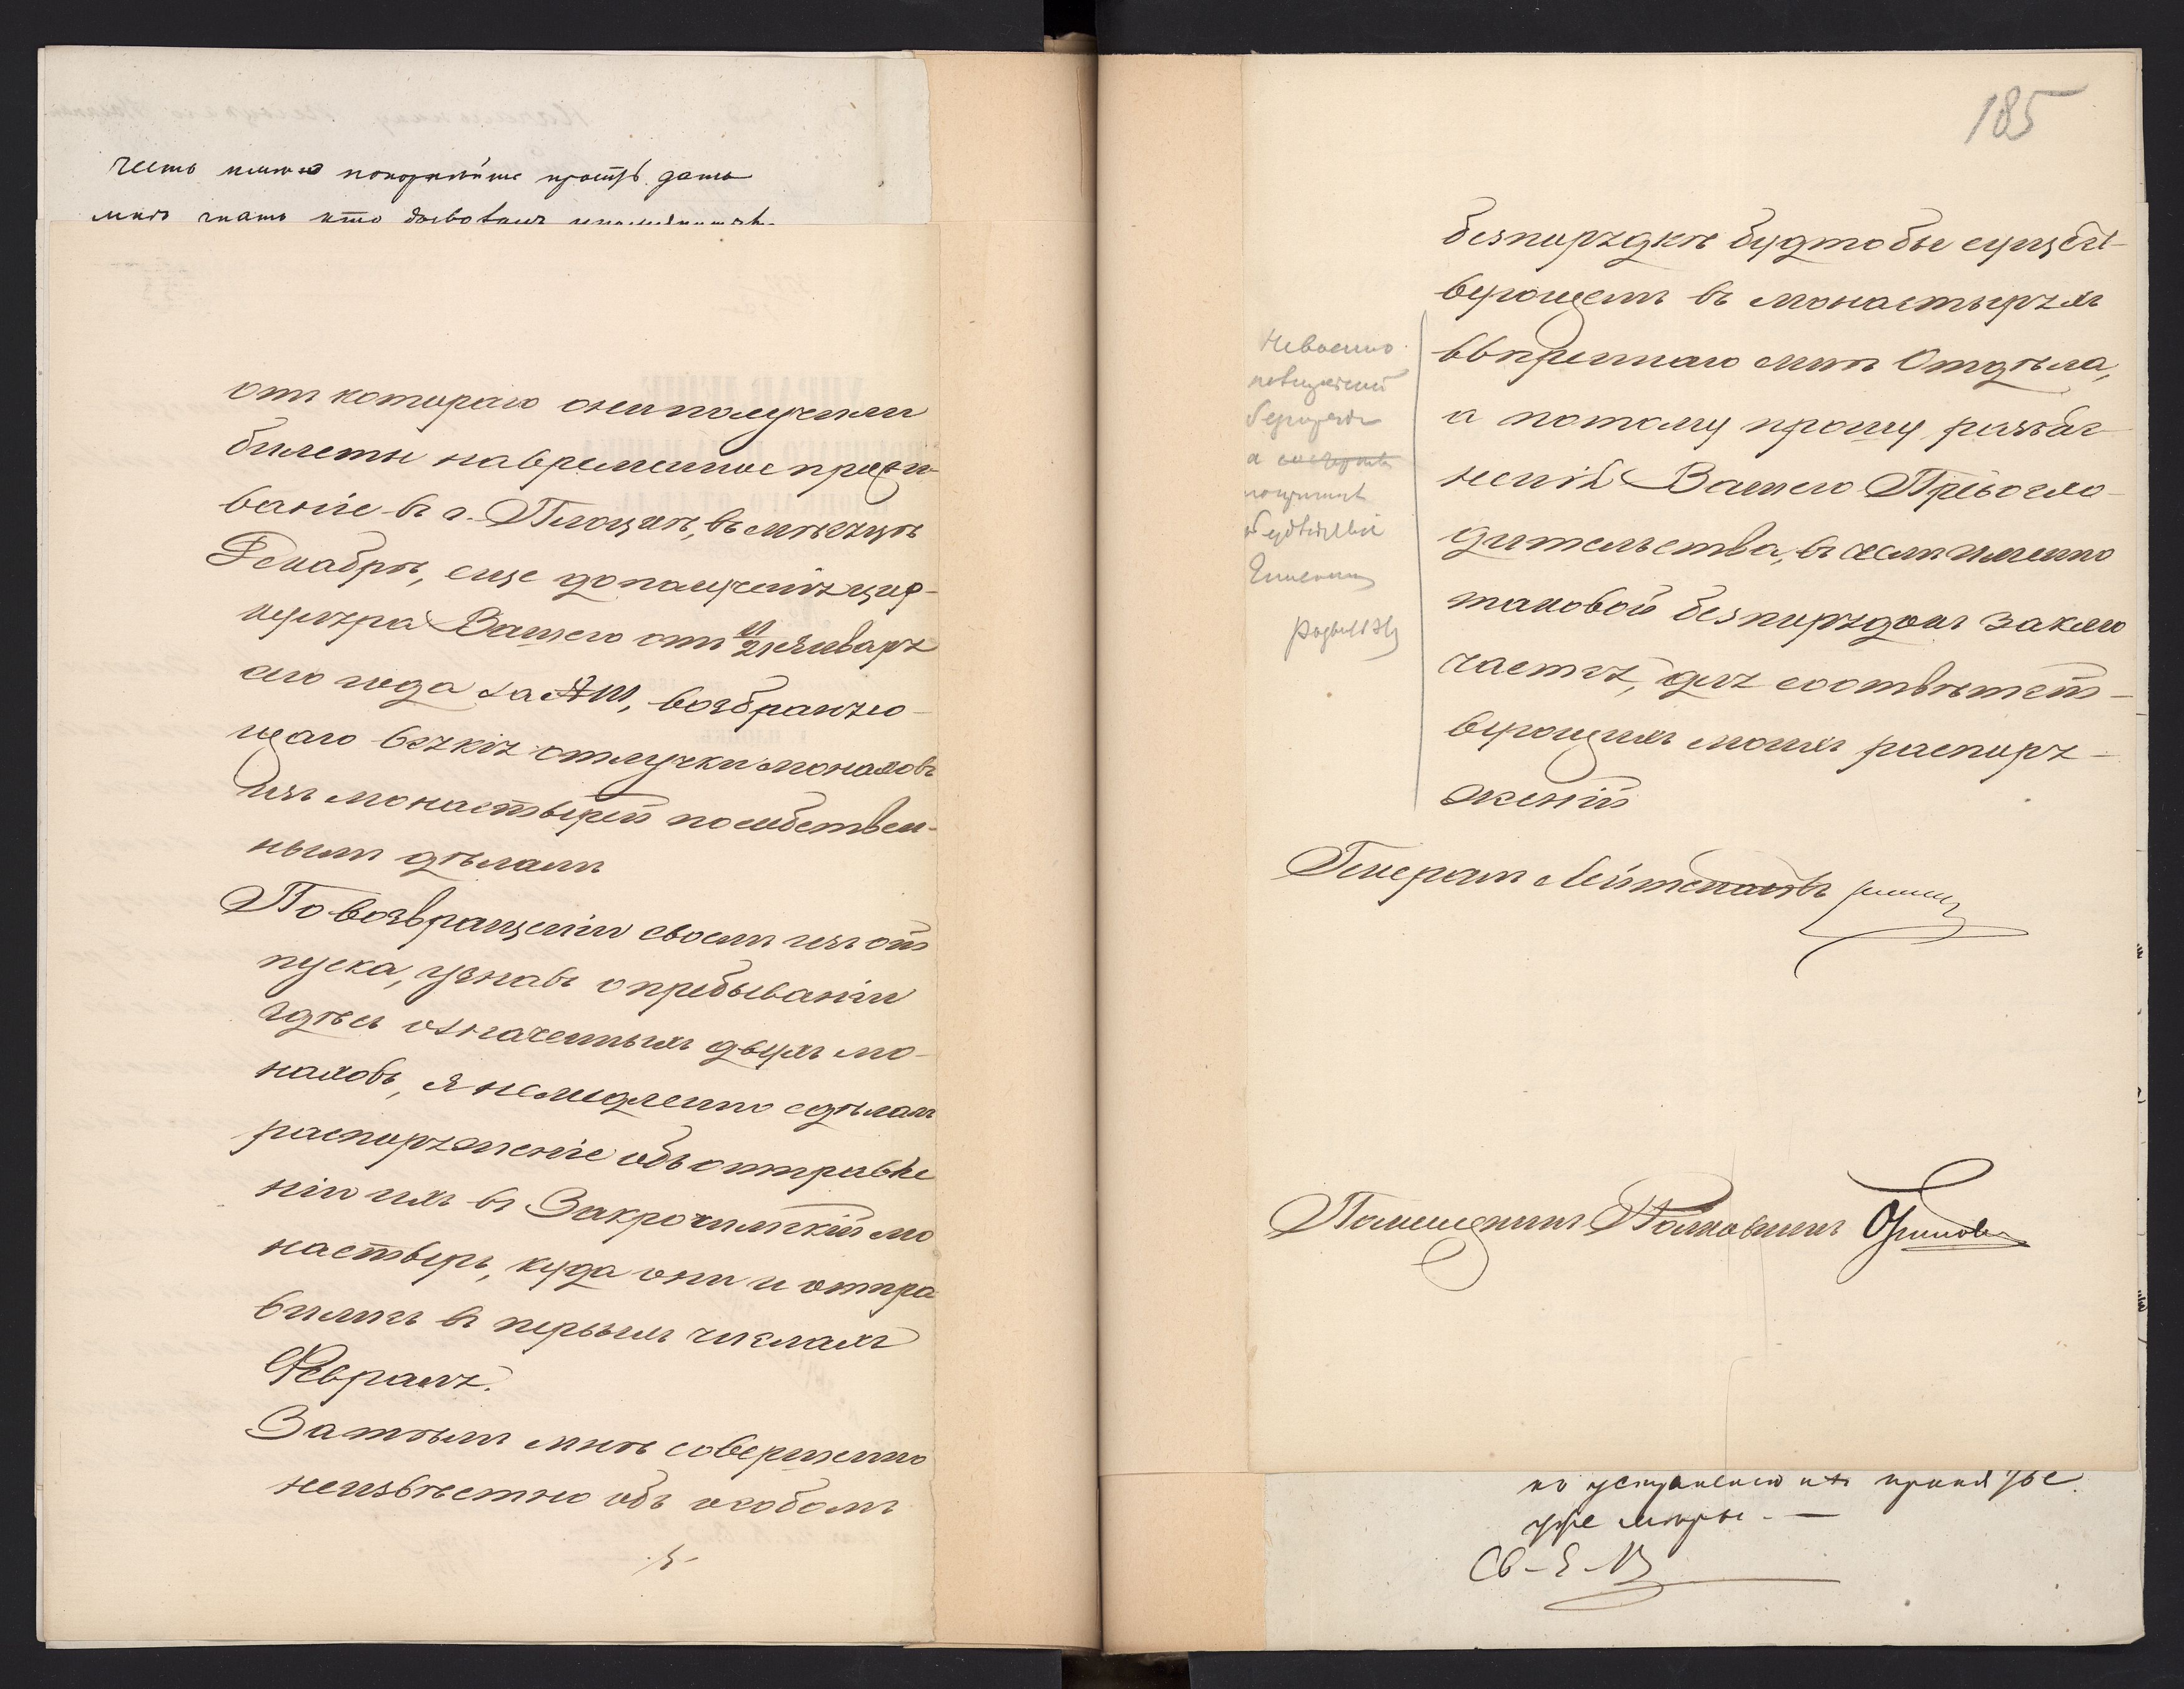 честь имею покорнѣйше просить дать
мнѣ знать кто дозволилъ
отъ котораго они получили
билеты на временное прожи-
ваніе въ г. Плоцкѣ, въ мѣсяцѣ
Декабрѣ, еще до полученія цир-
куляра Вашего отъ 21 Января
сего года за №, возбраняю-
щаго всякія отлучки монаховъ
изъ монастырей по собствен-
нымъ дѣламъ
По возвращеніи своемъ изъ от
пуска, узнавъ о пребываніи
здѣсь означенныхъ двухъ мо-
наховъ, я немедленно сдѣлалъ
распоряженіе объ отправле
ніи ихъ въ Закрочимскій мо
настырь, куда они и отпра
вились въ первыхъ числахъ
Февраля.
Затѣмъ мнѣ совершенно
неизвѣстно объ особомъ
185
безпорядкѣ будто бы сущест-
вующемъ въ монастыряхъ
ввѣреннаго мнѣ Отдѣла,
а потому прошу разъяс-
ненія Вашего Превосхо-
дительства, въ чемъ именно
таковой безпорядокъ заклю
чается, для соотвѣтст-
вующихъ моихъ распоря-
женій
Генералъ Лейтенантъ
Помощникъ Полковникъ
къ устраненію ихъ приняты
уже мѣры. —